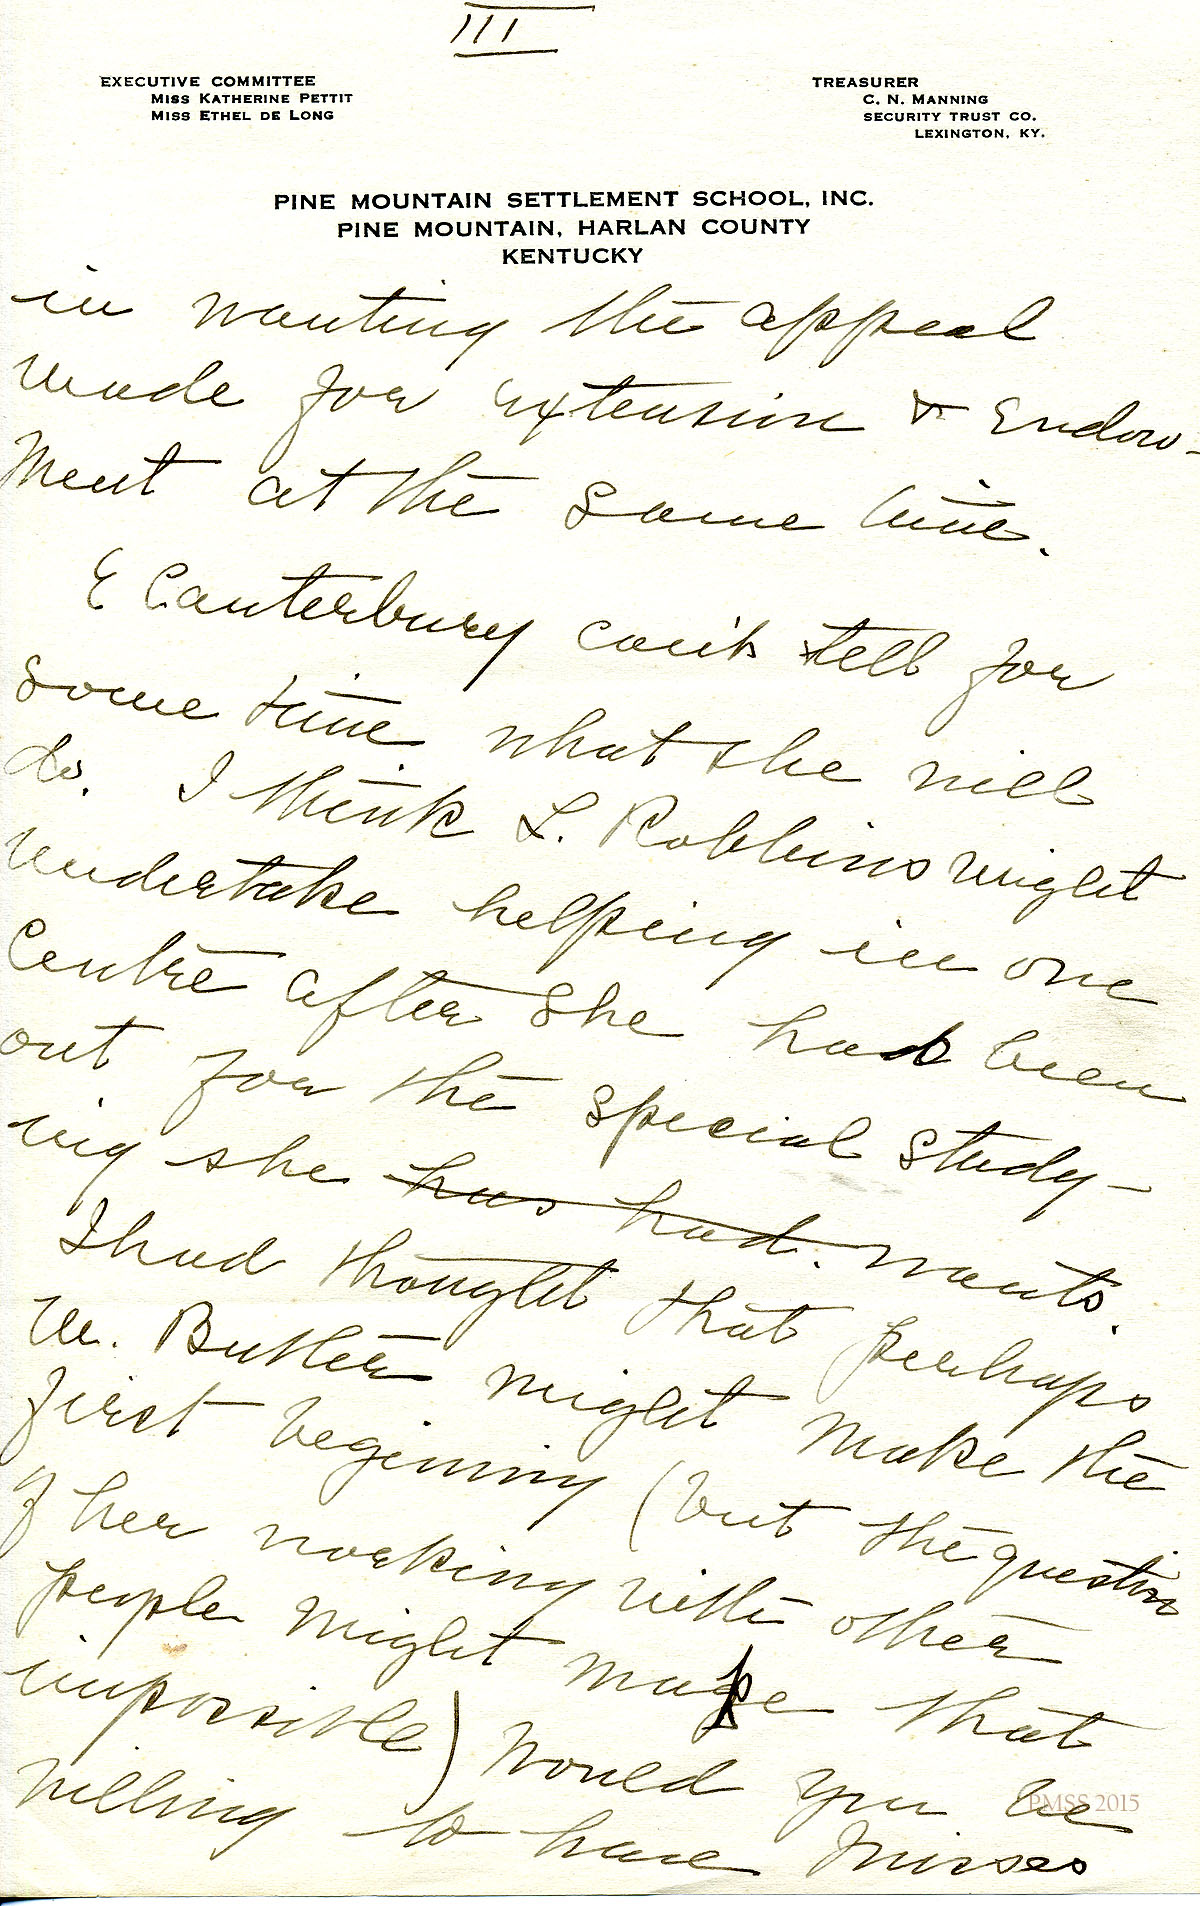 III
EXECUTIVE COMMITTEE
MISS KATHERINE PETTIT
MISS ETHEL DE LONG
TREASURER
C. N. MANNING
SECURITY TRUST CO.
LEXINGTON, KY.
PINE MOUNTAIN SETTLEMENT SCHOOL, INC.
PINE MOUNTAIN, HARLAN COUNTY
KENTUCKY
in wanting the appeal
made for extension & Endow-
ment at the same time.
E Canterbury can't tell for
some time what she will
do. I think L. Robbins might
undertake helping in one
Centre after she had been
out for the special study-
ing she has had. wants.
I had thought that perhaps
M. Butler might make the
first beginning (but the question
of her working with other
people might make that
impossible) Would you be
willing to have Misses
PMSS 2015